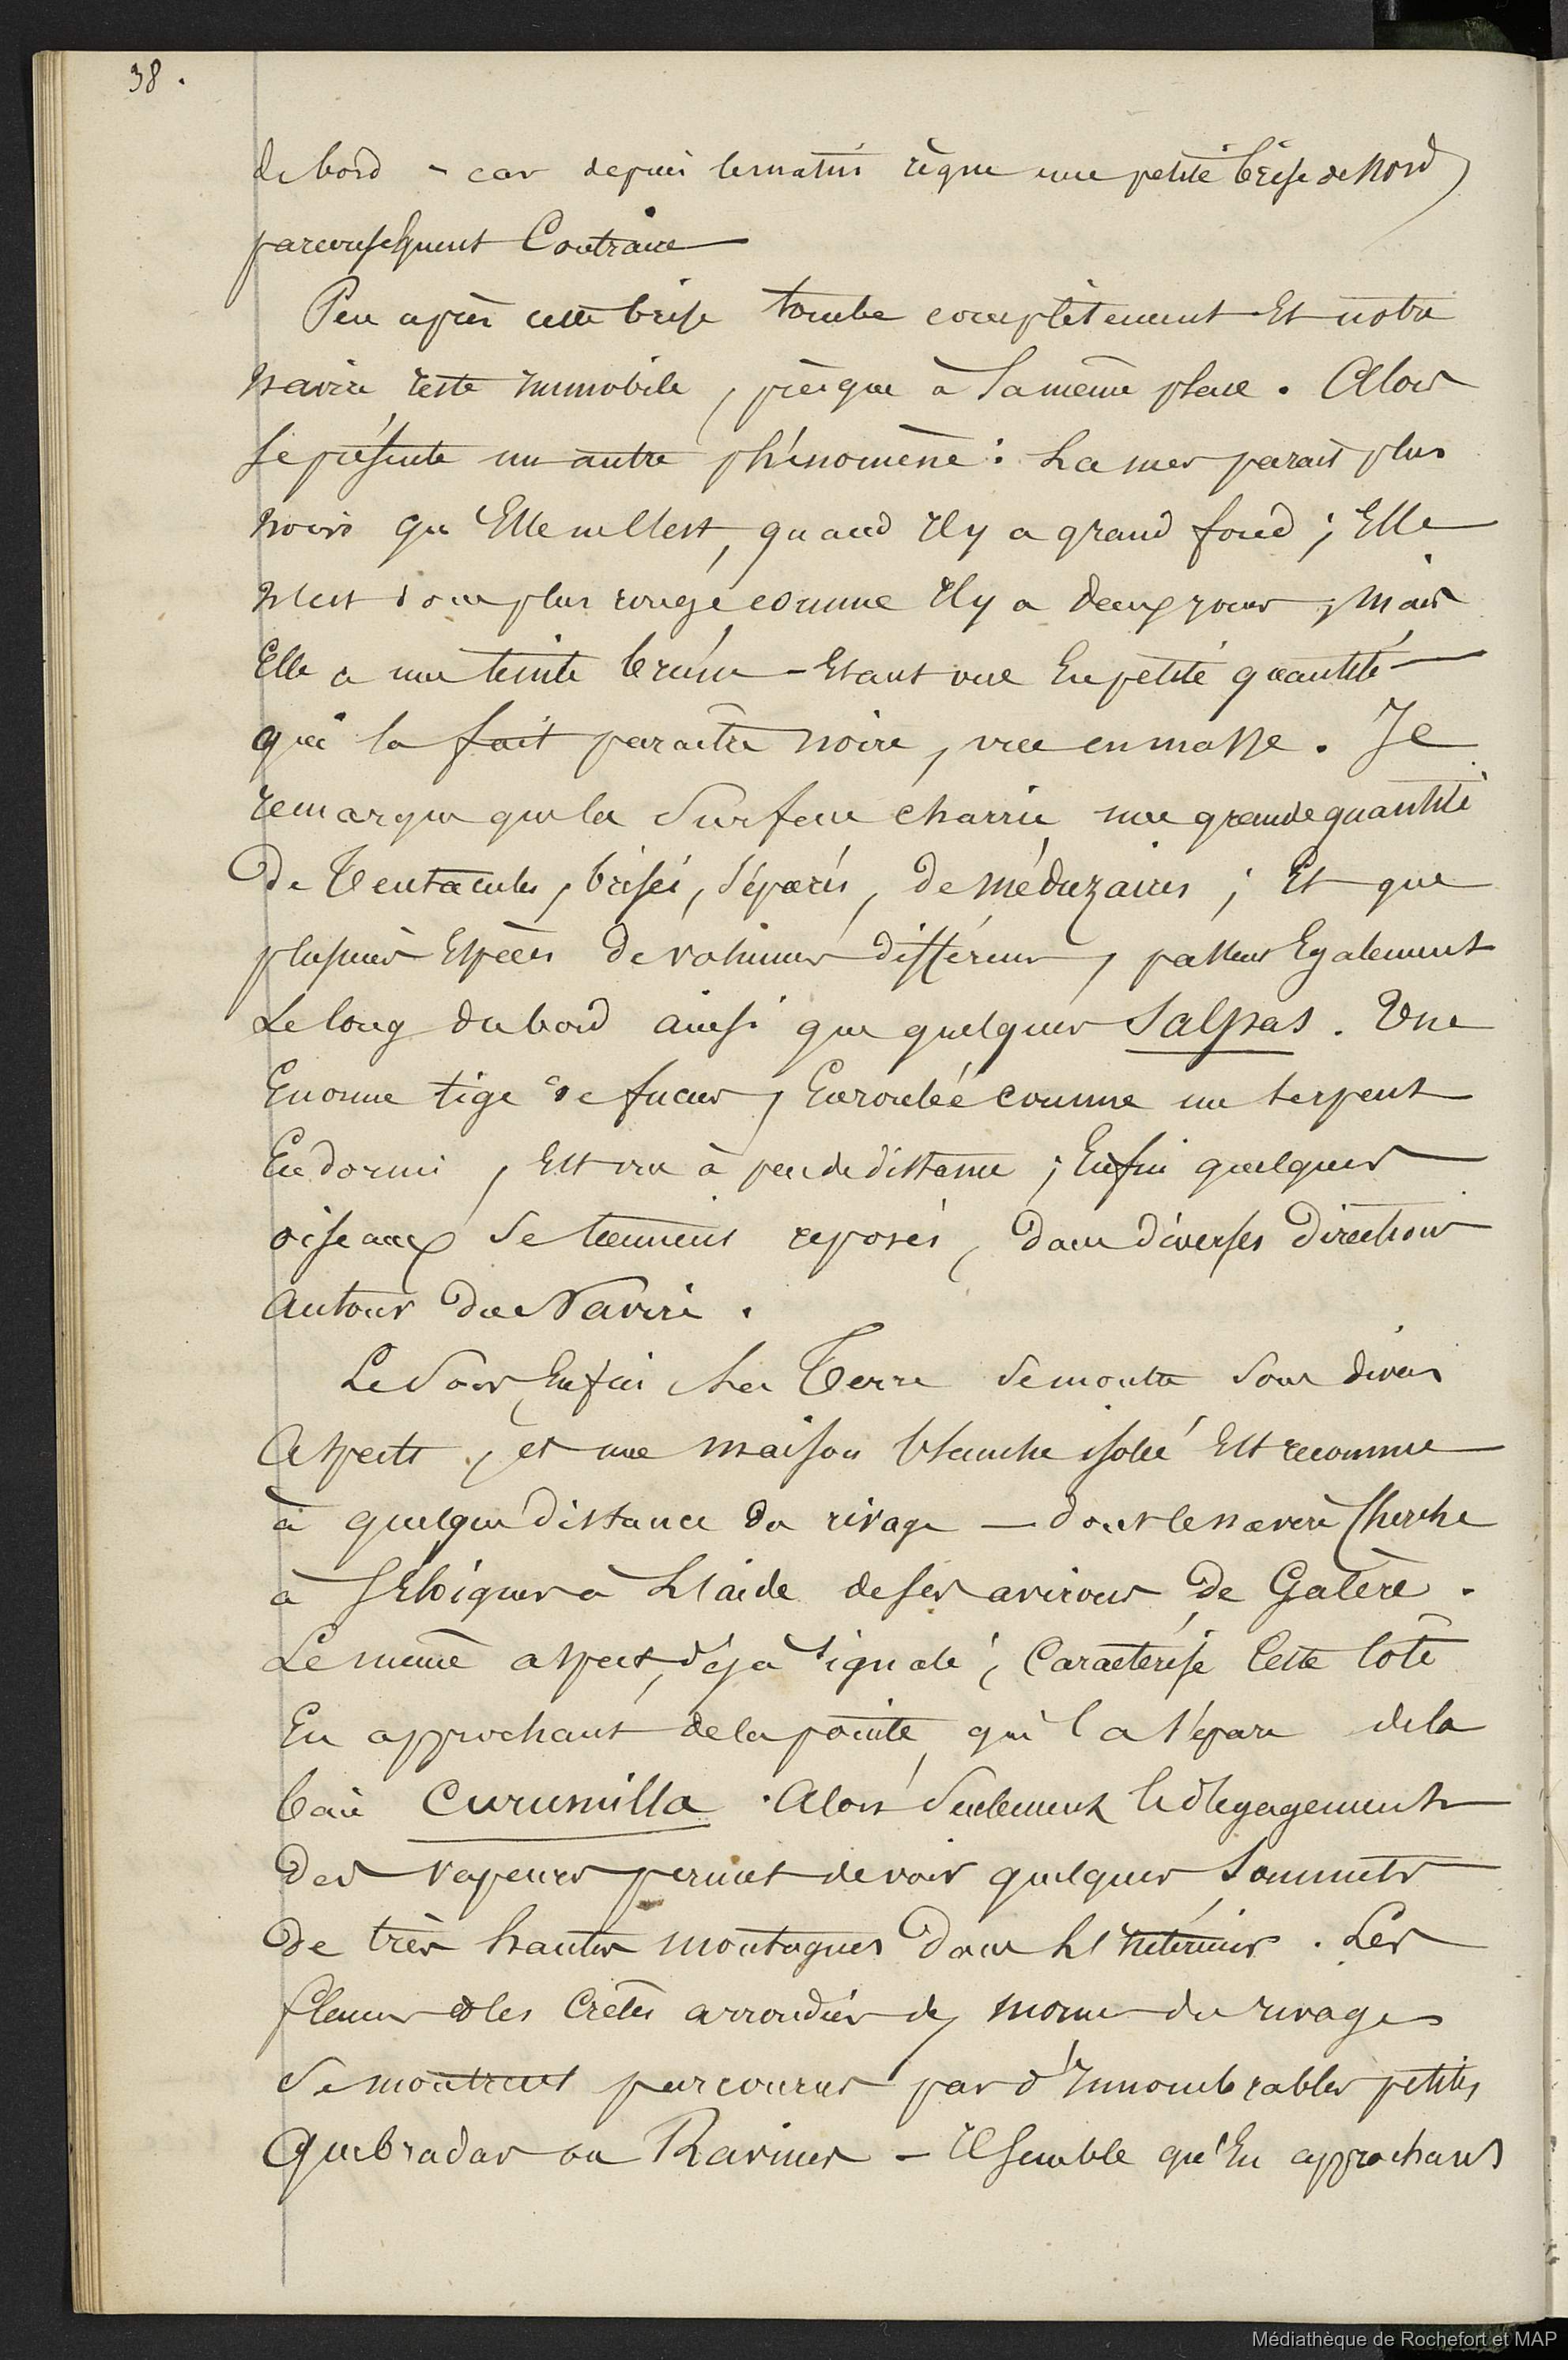 38.
de bord - car depuis le matin règne une petite brise de Nord
par conséquent Contraire
Peu après cette brise tombe complètement Et notre
Navire reste Immobile, presque à la même place. Alors
se présente un autre phénomène : La mer parait plus
noire qu'Elle ne l'est, quand Il y a grand fond ; Elle
n'est donc plus rouge comme Il y a deux jours, mais
Elle a une teinte brune - Etant vue En petite quantité -
qui la fait paraître noire, vue en masse. Je
remarque que la Surface charrie une grande quantité
De Tentacules, brisés, séparés, de méduzaires ; Et que
plusieurs Espèces de volumes différens, passent Egalement
Le long du bord ainsi que quelques Salpas. Une
Enorme tige de fucus, Enroulée comme un serpent
Endormi, Est vue à peu de distance ; Enfin quelques
oiseaux se tiennent reposés, dans diverses Directions
autour du Navire.
Le Soir Enfin La Terre se montre sous divers
Aspects, et une maison blanche isolée Est reconnue
à quelque distance du rivage — dont le navire Cherche
à S'Eloigner à L'aide de ses avirons de Galère.
Le même aspect, déjà signalé, Caractérise Cette Côte
En approchant de la pointe qui la sépare de la
baie Curumilla. Alors Seulement le dégagement
des vapeurs permet de voir quelques Sommets
De très hautes montagnes Dans L'Intérieur. Les
flancs & les Crêtes arrondies des mornes du rivage
se montrent parcourus par d'Innombrables petites
Quebradas ou Ravines - Il semble qu'En approchant
Médiathèque de Rochefort et MAP